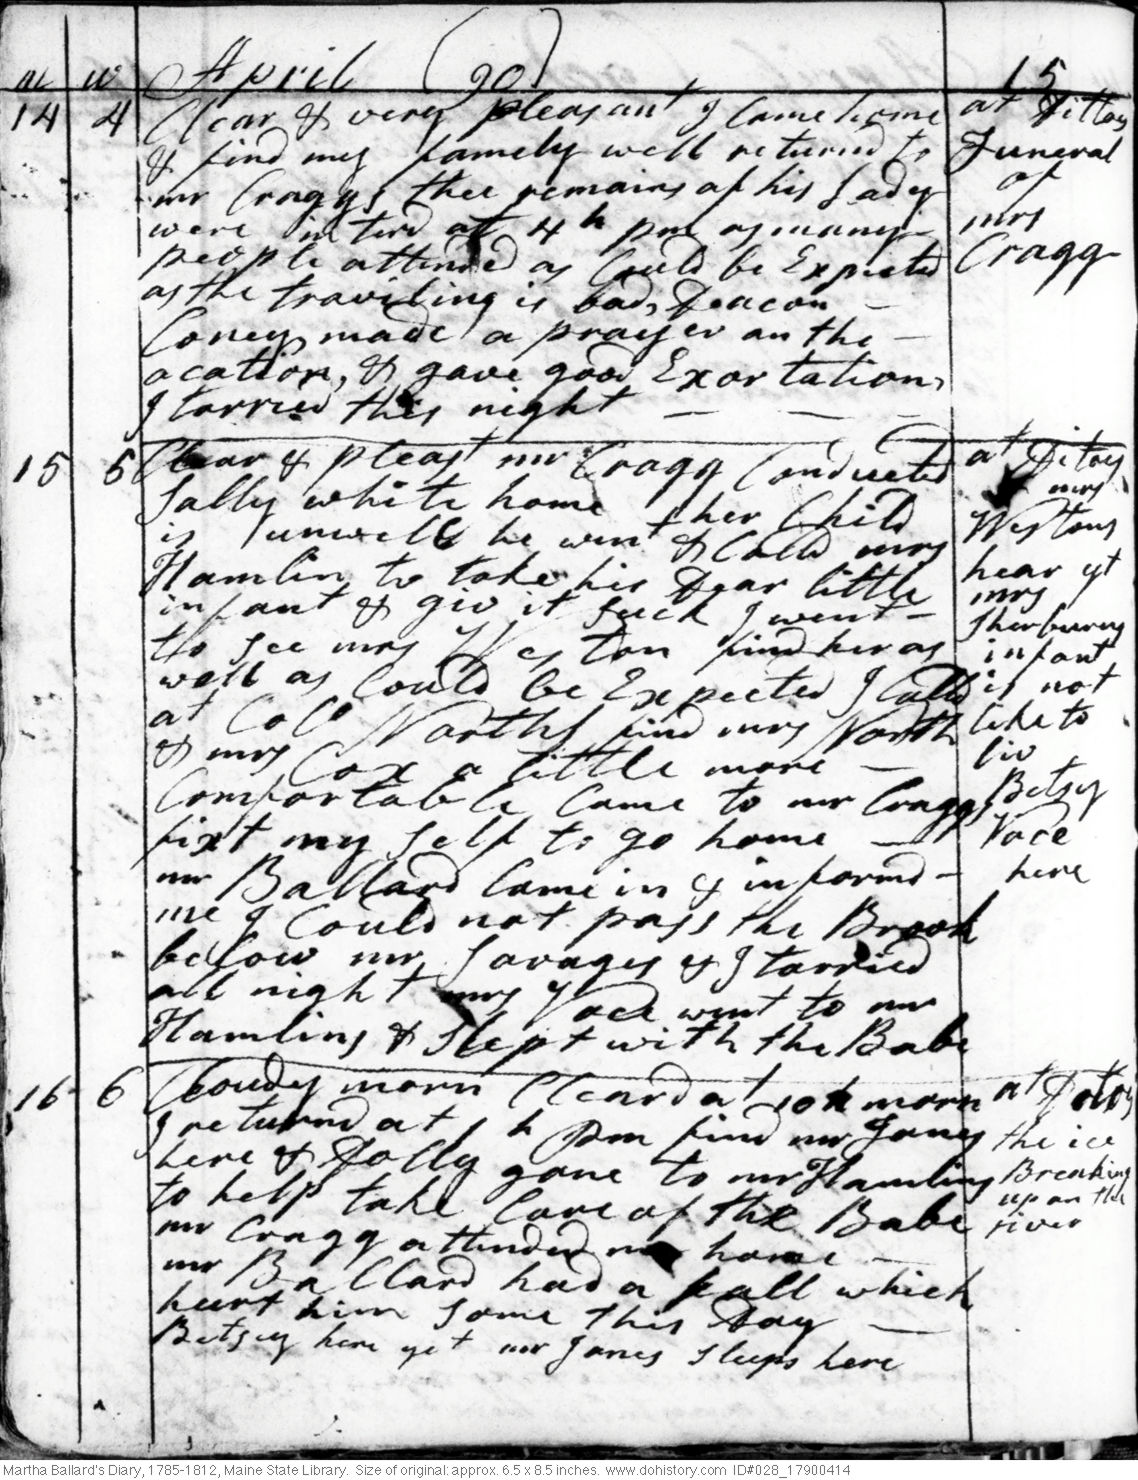 m w April (90) 15
14 4 Clear & very pleasant I Came home
& find my family well returnd to
mr Craggs thee remains of his Lady
were interd at 4 h pm as many
people attinded as Could be Expected
as the traviling is bad, Deacon –
Coney made a prayer on the –
ocation, & gave good Exortation,
I tarried this night – – – –
at Dittoes
Funeral
of
mrs
Cragg
15 5 Clear & pleast mr Cragg Conducted
Sally white home her Child
is unwell he went & Calld mrs
Hamlin to take his Dear little
infant & giv it Suck I went –
to See mrs Weston find her as
well as Could be Expected I Calld
at Colo Norths find mrs North
& mrs Cox a little more –
Comfortable Came to mr Craggs
fixt my Self to go home –
mr Ballard Came in & informd –
me I Could not pass the Brook
below mr Savages & I tarried
all night mrs Voce went to mr
Hamlins & Slept with the Babe
at Ditoes
mrs
Westons
hear yt
mrs
Sherburns
infant
is not
like to
liv
Betsey
Voce
here
16 6 Cloudy morn Cleard at 10 h morn
I returnd at 1 h pm find mr Jones
here & Dolly gone to mr Hamlins
to help take Care of the Babe
mr Cragg attended me home –
mr Ballard had a fall which
hurt him Some this Day –
Betsey here yet mr Jones Sleeps here
at
the ice
Breaking
up on the
river
Martha Ballard's Diary, 1785-1812, Maine State Library. Size of original: approx. 6.5 x 8.5 inches. www.dohistory.com ID#028_17900414